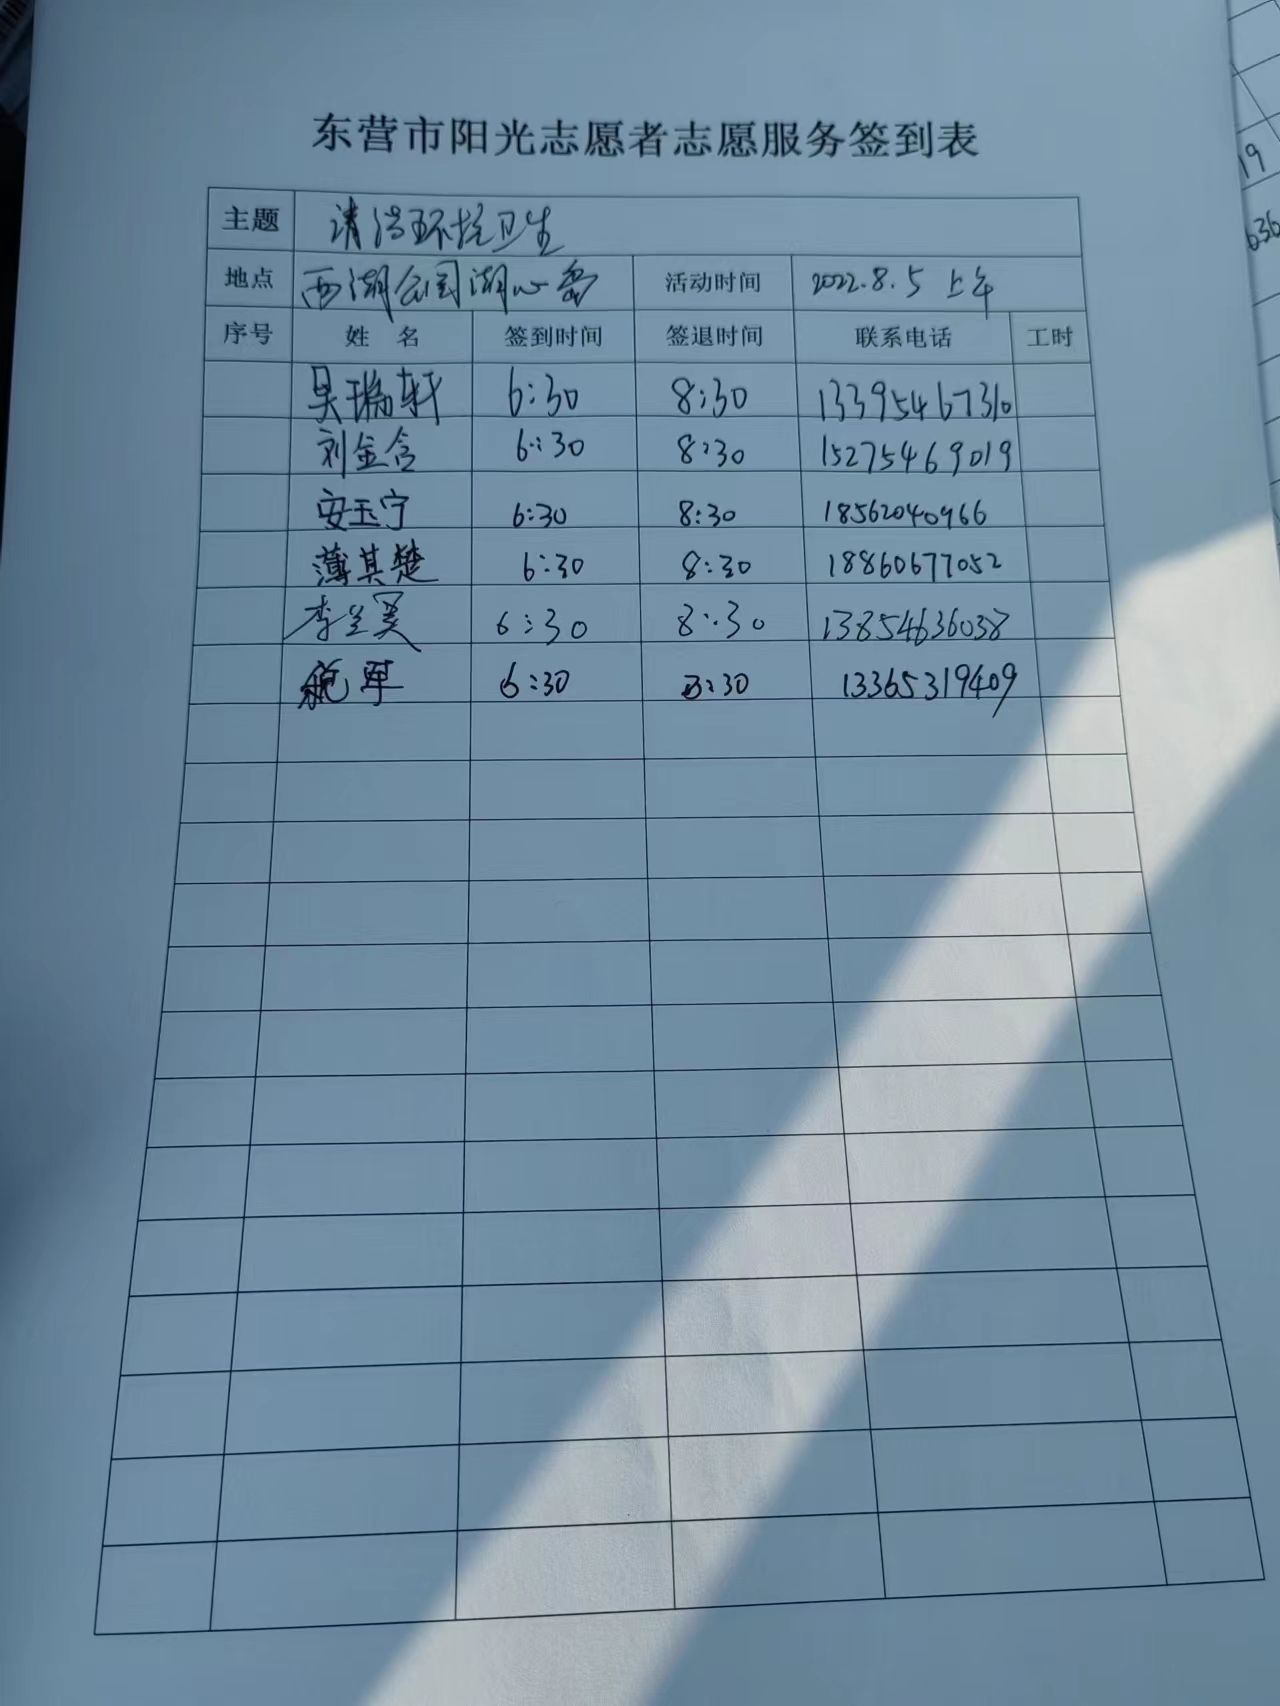 东营市阳光志愿者志愿服务签到表
主题 清洁环境卫生
地点 西湖公园湖心岛 活动时间 2022.8.5 上午
序号 姓 名 签到时间 签退时间 联系电话 工时
吴瑞轩 6:30 8:30 13395467310
刘金含 6:30 8:30 15275469019
安玉宁 6:30 8:30 18562040966
薄其楚 6:30 8:30 18860677052
李兰 6:30 8:30 13854636038
军 6:30 8:30 13365319409
19
636